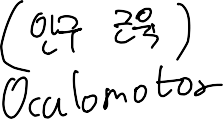 (안구 근육)
Oculomotor